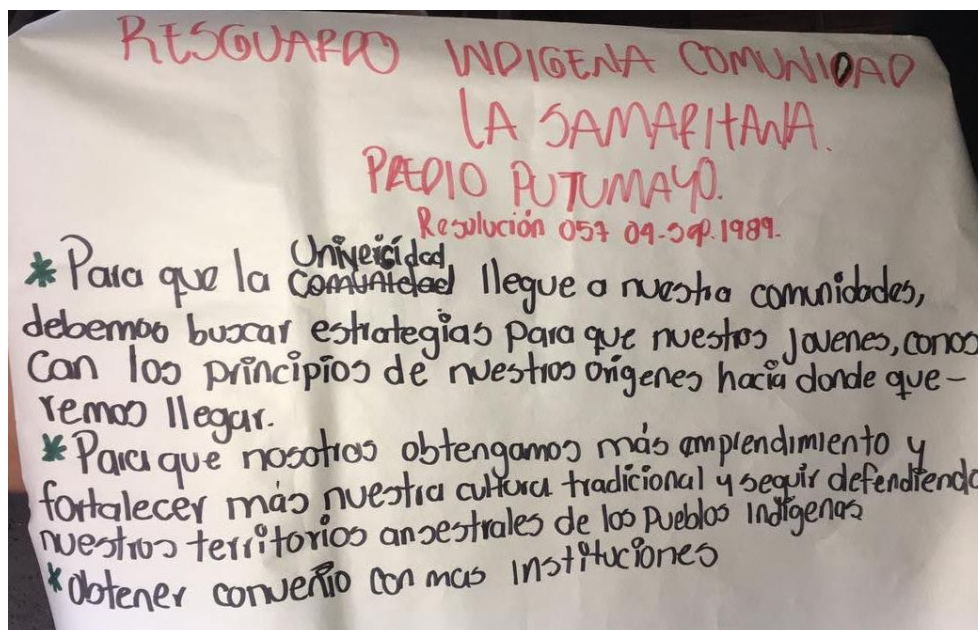 RESGUARDO INDIGENA COMUNIDAD
LA SAMARITANA.
PREDIO PUTUMAYO.
Resolución 057 04-sep.1989.
* Para que la Univeicidad comunidad llegue a nuestra comunidades,
debemos buscar estrategias para que nuestros Jovenes, conos
can los principios de nuestros origenes hacia donde que-
remos llegar.
* Para que nosotros obtengamos más emprendimiento y
fortalecer más nuestra cultura tradicional y seguir defendiendo
nuestros territorios ansestrales de los Pueblos Indigenas
* Obtener conveñio con mas Instituciones